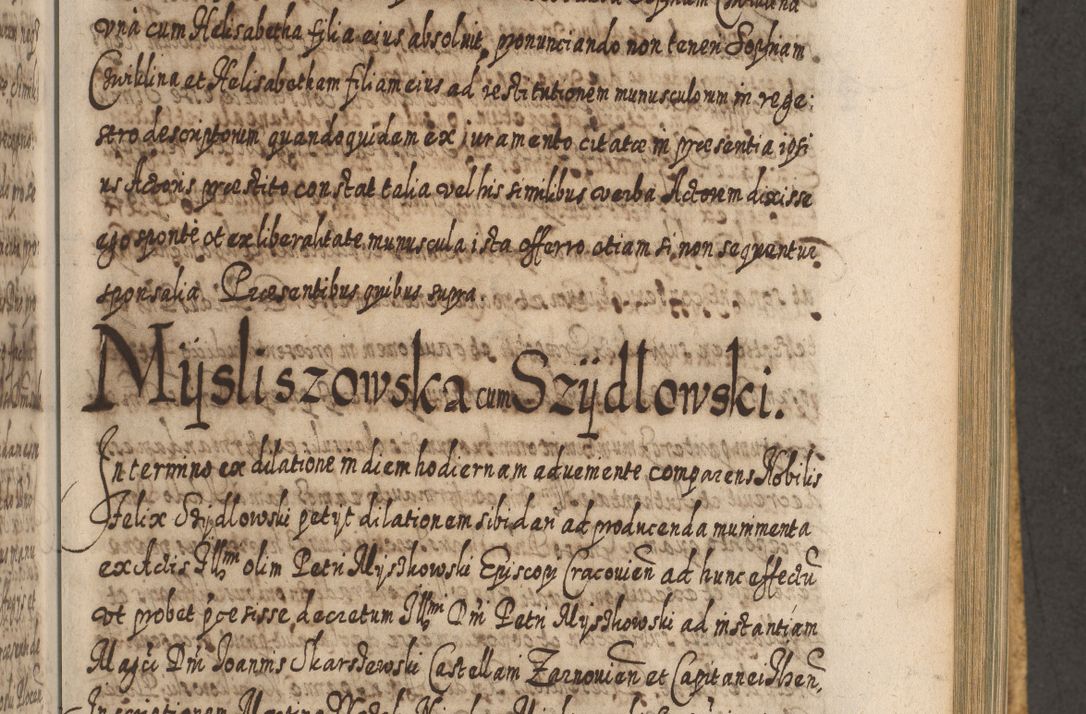 vna cum Helisabetha filia eius absoluit, pronunciando non teneri Sophiam
Cwiklina et Helisabetham filiam eius ad restitutionem munusculorum in rege:
stro descriptorum quandoquidem ex iuramento citatæ in præsentia ipsi
us Actoris præstito constat talia vel his similibus verba Actorem dixisse
ego sponte et ex liberalitate munuscula ista offerro etiam si non sequentur
sponsalia. Præsentibus quibus supra.
Mÿsliszowska cum Szÿdlowski.
In termino ex dilatione in diem hodiernam adueniente comparens Nobilis
Felix Szÿdlowski petijt dilationem sibi dari ad producenda munimenta
ex Actis Illmi olim Petri Myszkowski Episcopi Cracouien̄ ad hunc effectū
vt probet præsisse decretum Illmi Dn̄i Petri Myszkowski ad instantiam
Magci Dn̄i Joannis Skarszewski Castellani Zarnouien̄ et Capitanei